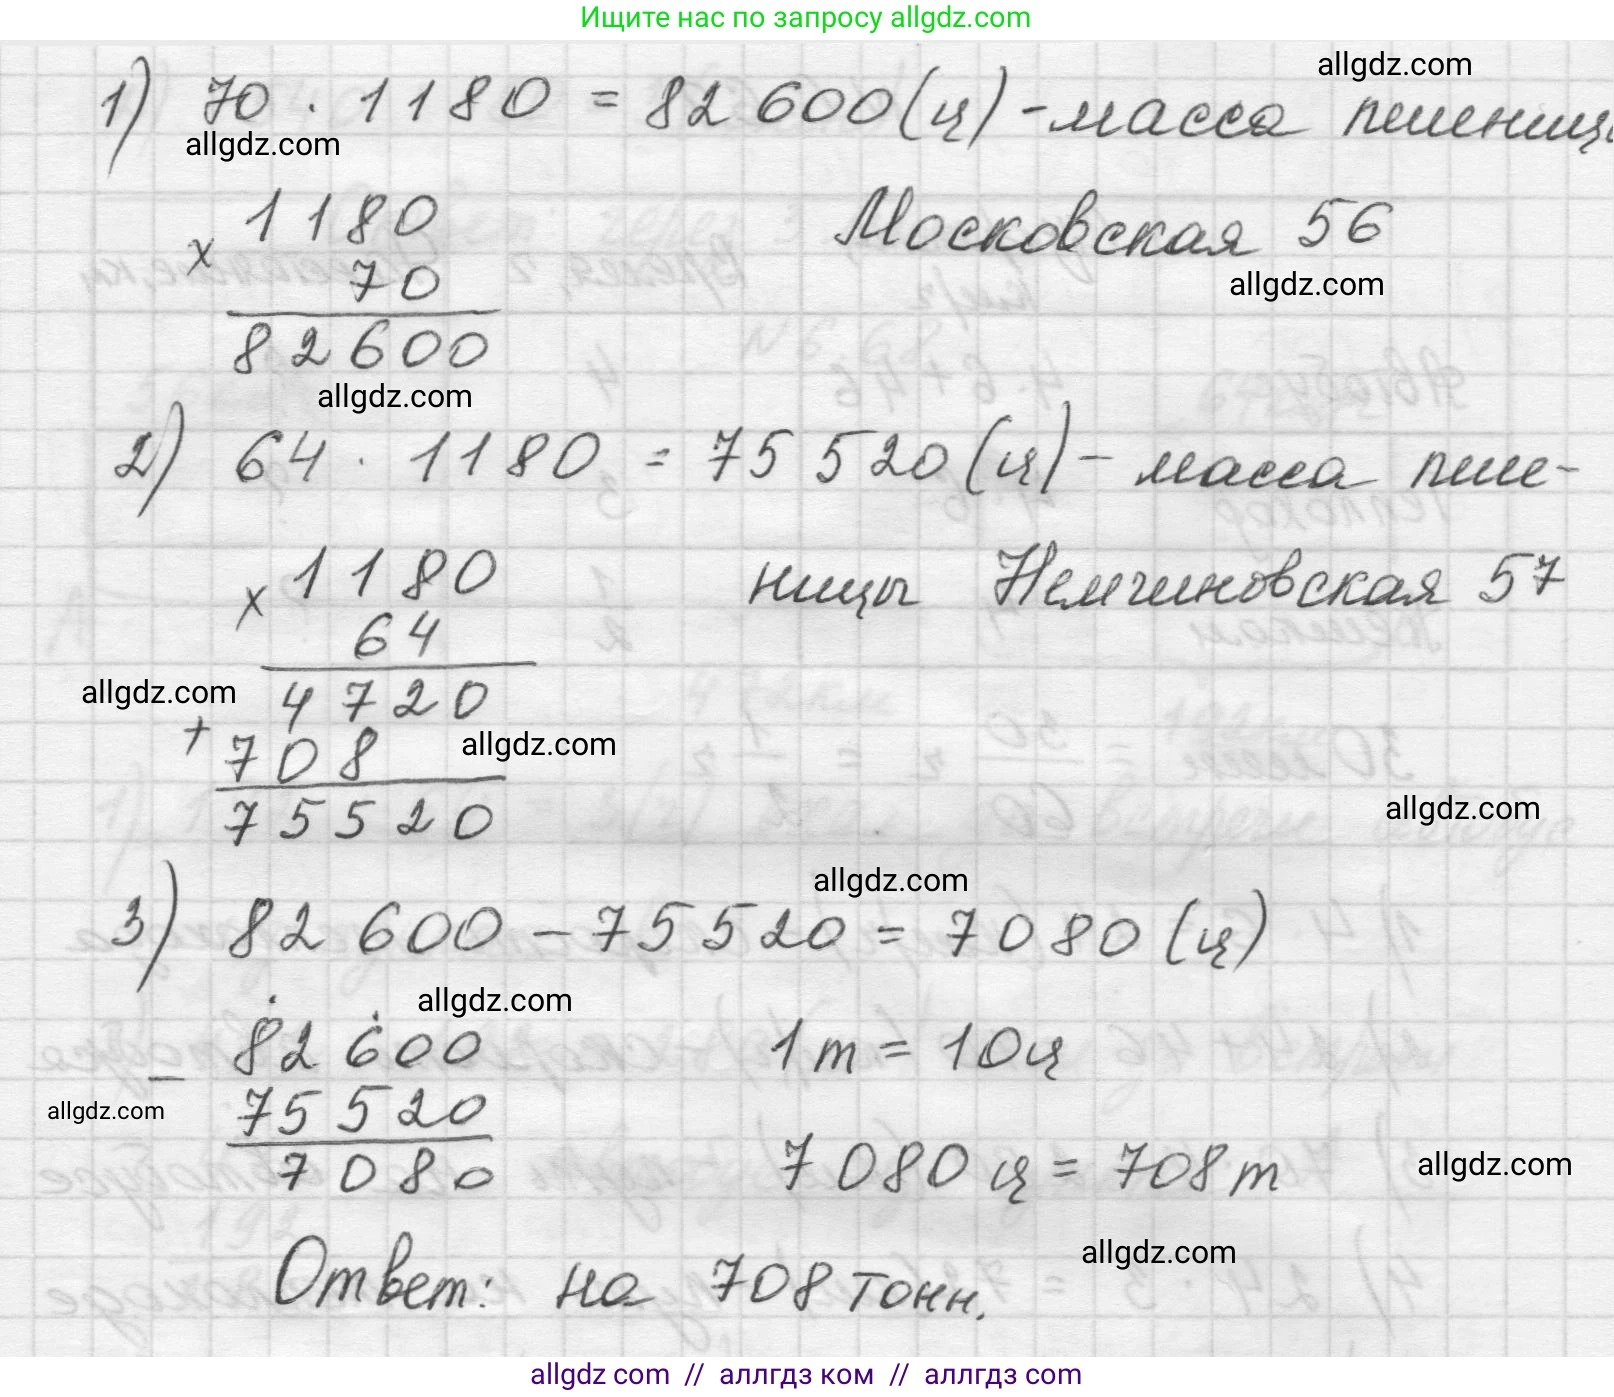 Ищите нас по запросу allgdz.com
allgdz.com
1) 70 · 1180 = 82 600 (ц) - масса пшеницы
allgdz.com
1180
Московская 56
x
70
allgdz.com
82600
allgdz.com
2) 64 · 1180 = 75 520 (ц) - масса пше-
1180
ницы Немчиновская 57
x
64
allgdz.com
4720
+
708
allgdz.com
75520
allgdz.com
allgdz.com
3) 82 600 - 75 520 = 7080 (ц)
allgdz.com
82600
1 т = 10 ц
-
75520
allgdz.com
7080
7080 ц = 708 т
allgdz.com
allgdz.com
Ответ: на 708 тонн.
allgdz com // аллгдз ком // аллгдз com